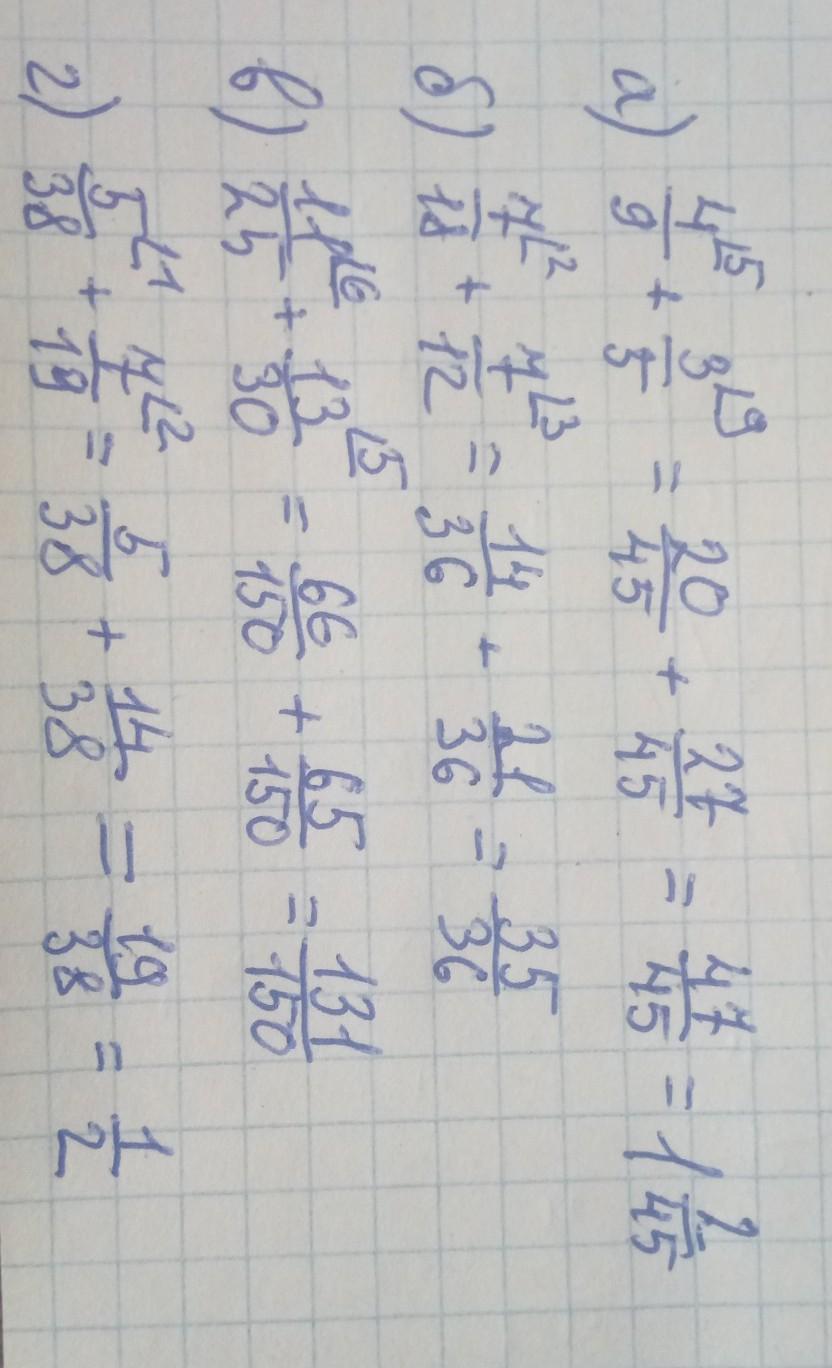 а) 4⌊5/9 + 3⌊9/5 = 20/45 + 27/45 = 47/45 = 1 2/45
б) 7⌊2/18 + 7⌊3/12 = 14/36 + 21/36 = 35/36
в) 11⌊6/25 + 13⌊5/30 = 66/150 + 65/150 = 131/150
г) 5⌊1/38 + 7⌊2/19 = 5/38 + 14/38 = 19/38 = 1/2